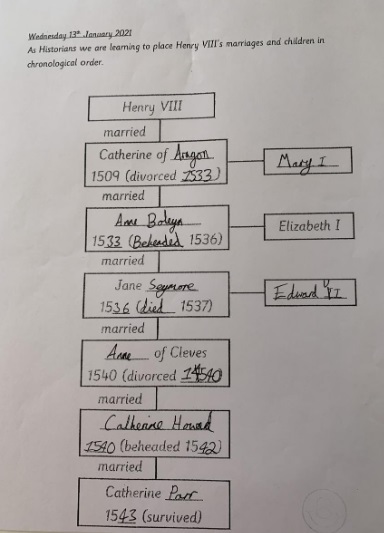 Wednesday 13th January 2021
As Historians we are learning to place Henry VIII's marriages and children in
chronological order.
Henry VIII
married
Catherine of Aragon
1509 (divorced 1533)
Mary I
married
Anne Boleyn
1533 (Beheaded 1536)
Elizabeth I
married
Jane Seymore
1536 (died 1537)
Edward VI
married
Anne of Cleves
1540 (divorced 1540)
married
Catherine Howard
1540 (beheaded 1542)
married
Catherine Parr
1543 (survived)